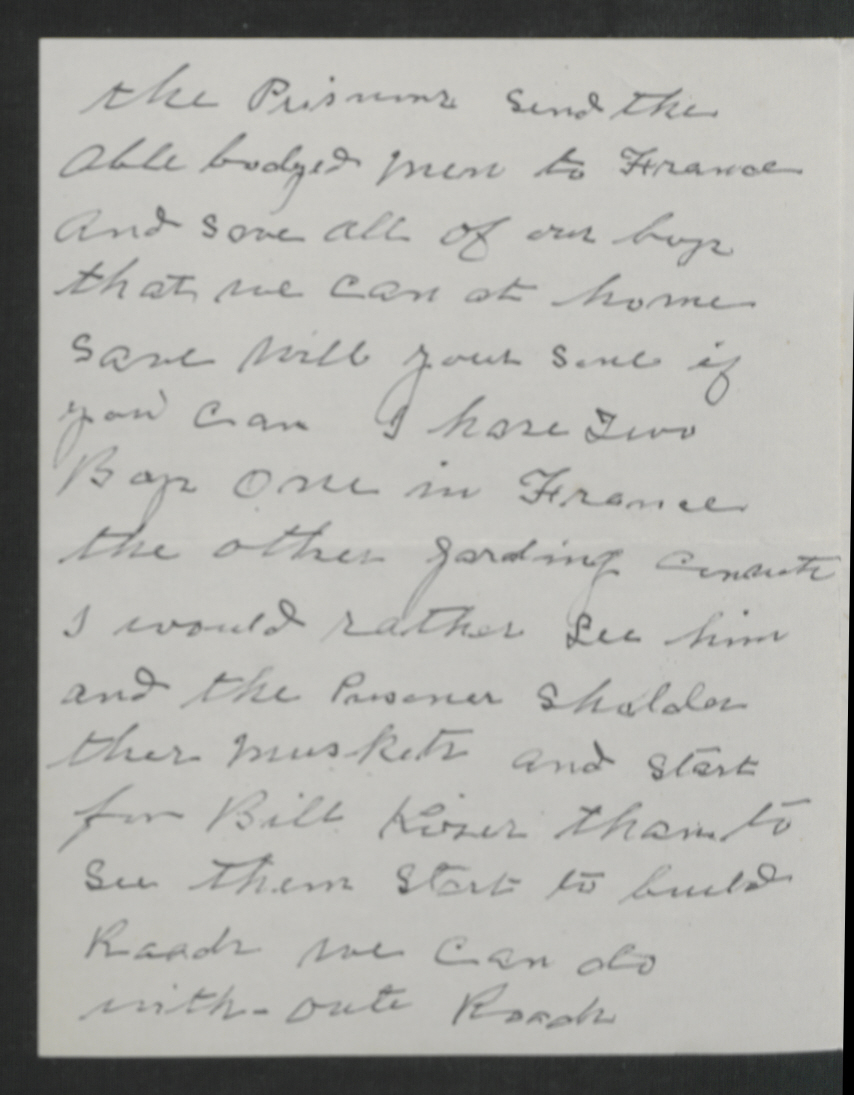 the Prisners Send the
Able bodyed men to France
And Save all of our boys
that we can at home
Save Will your Sone if
you can I have Two
Boys One in France
the other garding
I would rather See him
and the Prisoner Sholder
ther muskets and Start
for Bill Kiser than to
See them Start to build
Roads we can do
with-oute Roads